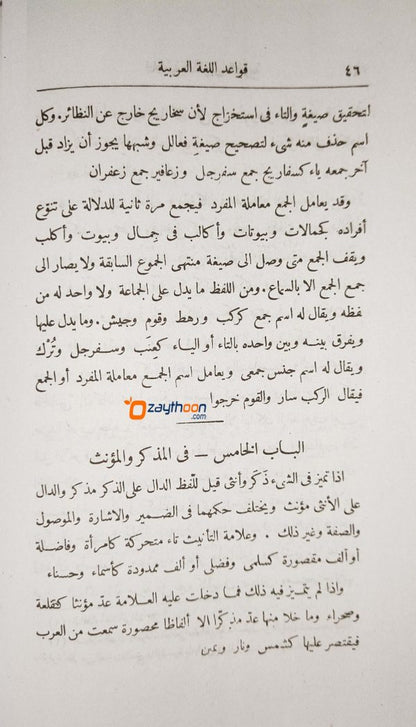 ٤٦ قواعد اللغة العربية
لتحقيق صيغة والتاء فى استخزاج لأن سخاريج خارج عن النظائر. وكل
اسم حذف منه شىء لتصحيح صيغة فعالل وشبهها يجوز أن يزاد قبل
آخر جمعه ياء كسفاريج جمع سفرجل وزعافير جمع زعفران
وقد يعامل الجمع معاملة المفرد فيجمع مرة ثانية للدلالة على تنوّع
أفراده كجمالات وبيوتات وأكالب فى جمال وبيوت وأكلب
ويقف الجمع متى وصل الى صيغة منتهى الجموع السابقة ولا يصار الى
جمع الجمع الا بالسماع. ومن اللفظ ما يدل على الجماعة ولا واحد له من
لفظه ويقال له اسم جمع كركب ورهط وقوم وجيش. وما يدل عليها
ويفرق بينه وبين واحده بالتاء أو الياء كعنب وسفرجل وتُرْك
ويقال له اسم جنس جمعى ويعامل اسم الجمع معاملة المفرد أو الجمع
فيقال الركب سار والقوم خرجوا
Ozaythoon
.com
الباب الخامس – فى المذكر والمؤنث
اذا تميز فى الشىء ذَكَر وأنثى قيل للّفظ الدال على الذكر مذكر والدال
على الأنثى مؤنث ويختلف حكمهما فى الضمير والاشارة والموصول
والصفة وغير ذلك . وعلامة التأنيث تاء متحركة كامرأة وفاضلة
أو ألف مقصورة كسلمى وفضلى أو ألف ممدودة كأسماء وحسناء
واذا لم يتميز فيه ذلك فما دخلت عليه العلامة عدّ مؤنثا كقلعة
وصحراء وما خلا منها عدّ مذكرا الا ألفاظا محصورة سمعت من العرب
فيقتصر عليها كشمس ونار